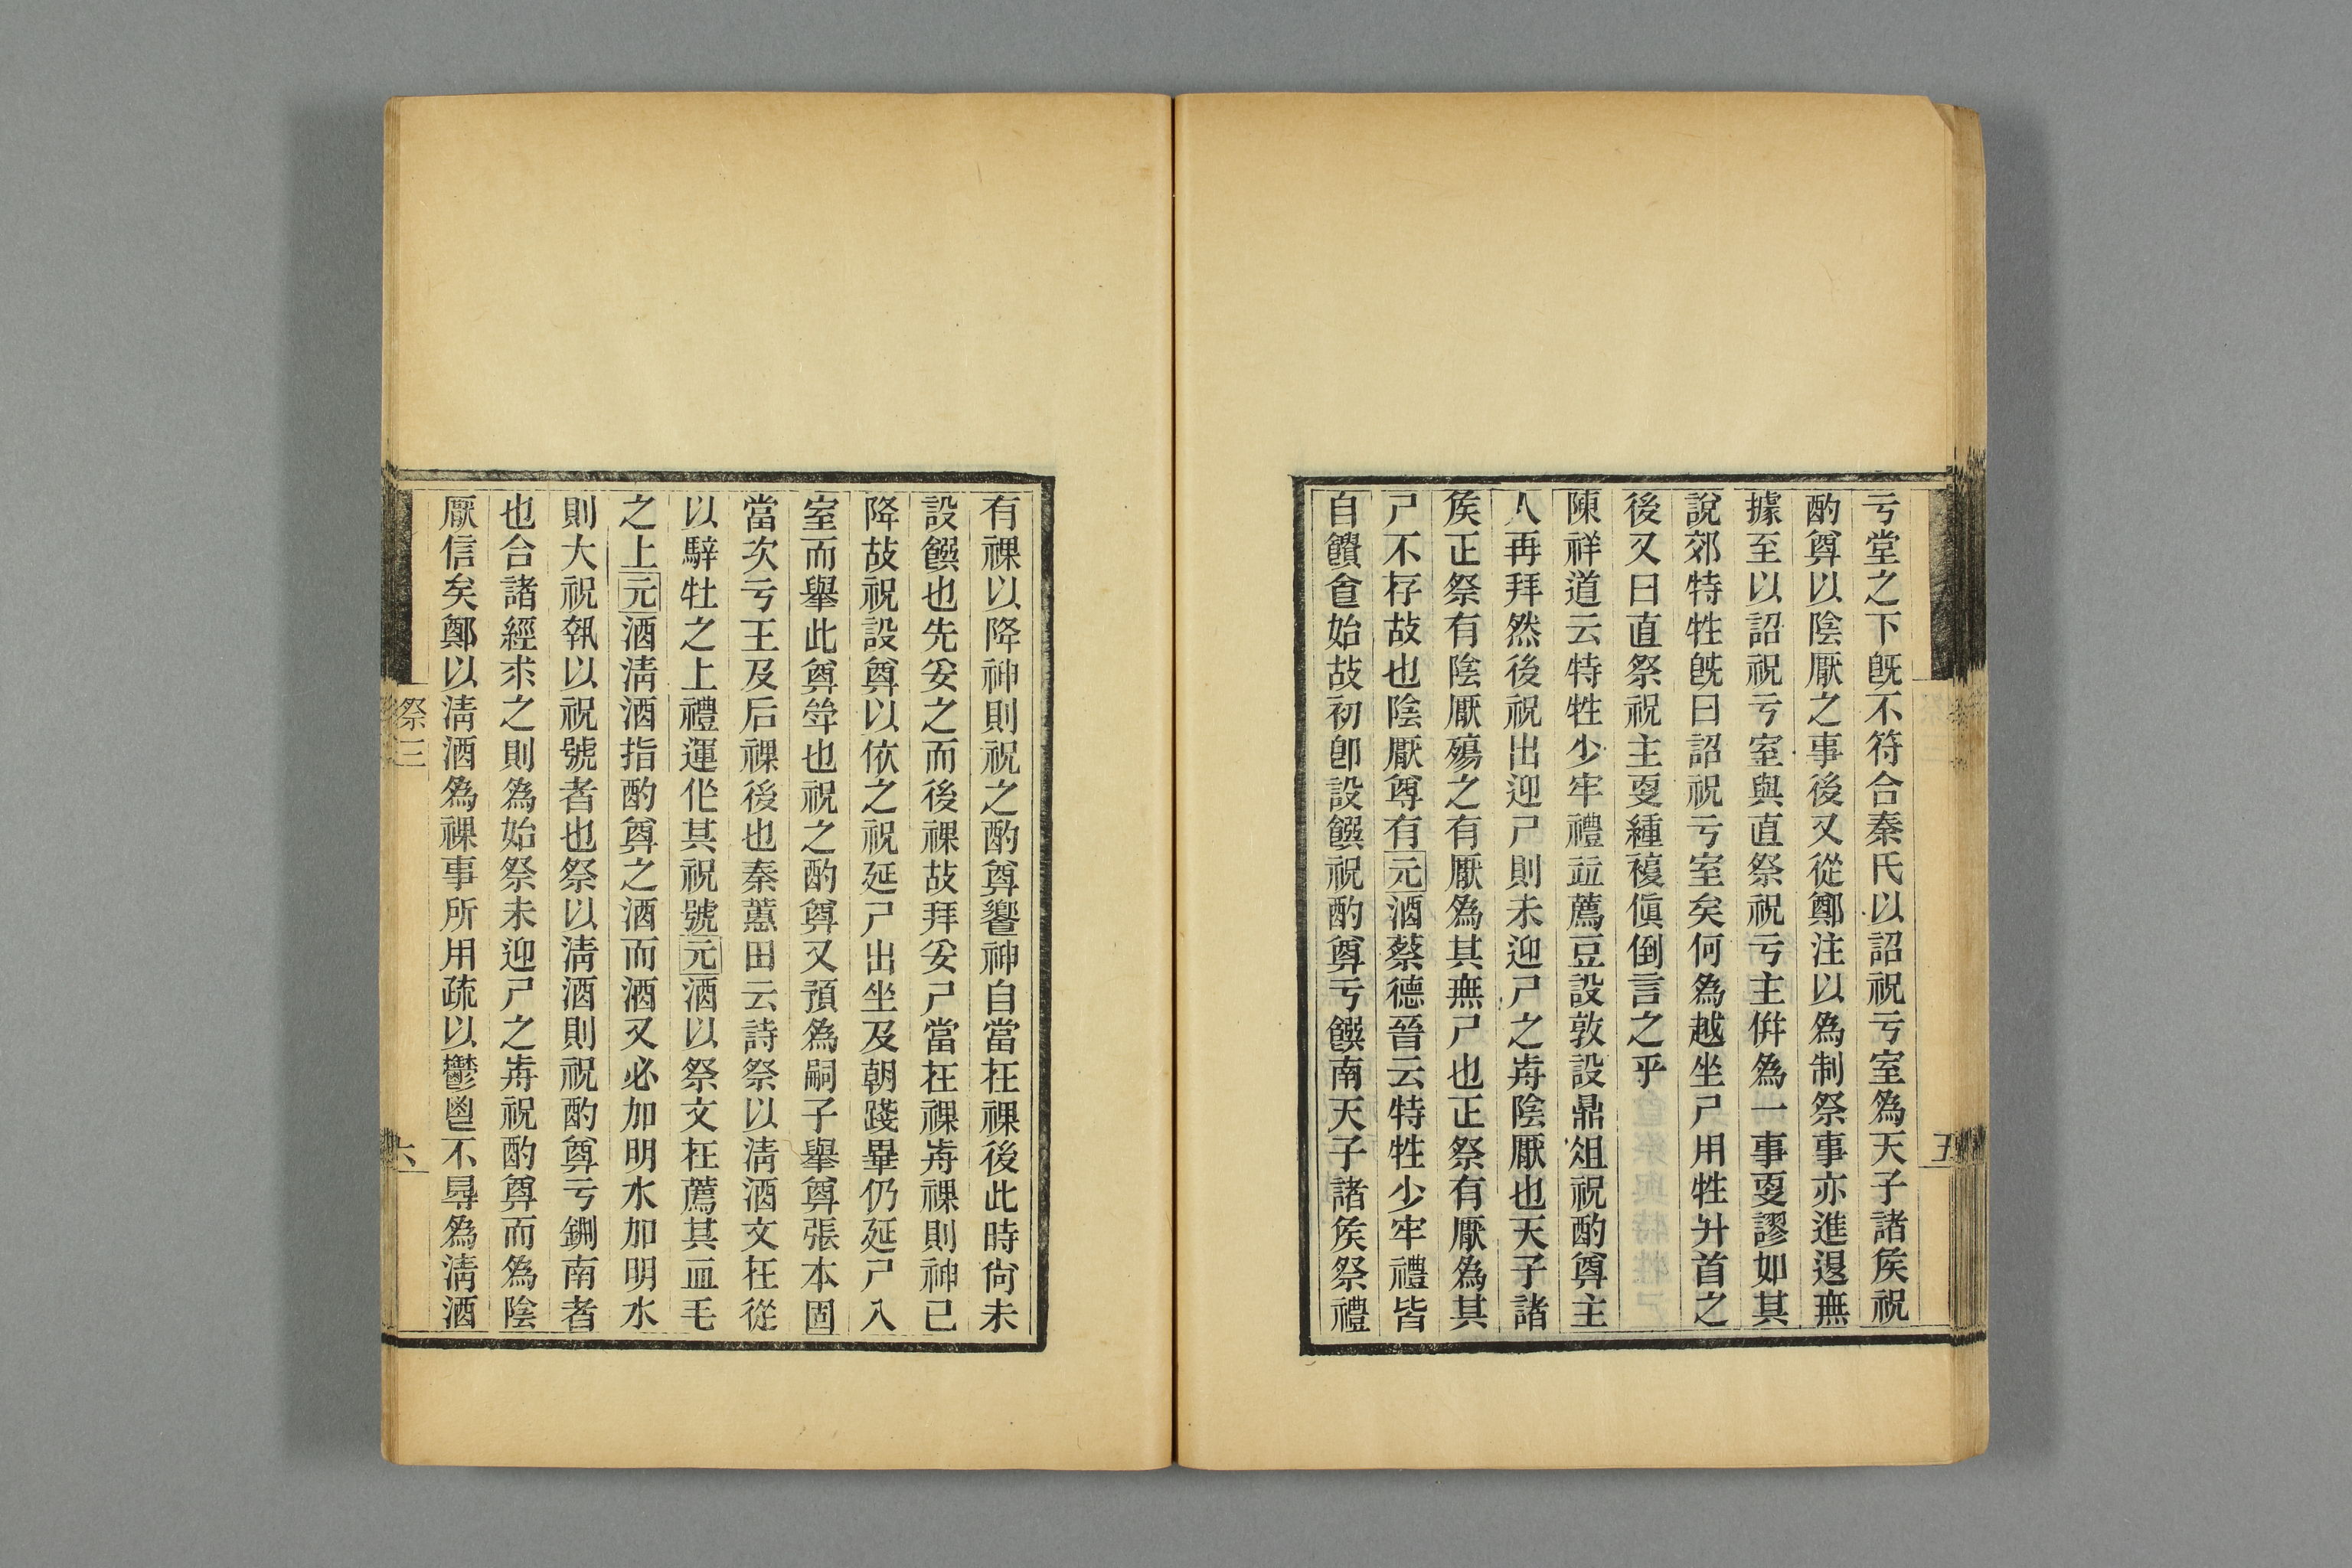 亏堂之下旣不符合秦氏以詔祝亏室為天子諸矦祝
酌尊以陰厭之事後又從鄭注以為制祭事亦進退無
據至以詔祝亏室與直祭祝亏主併為一事㪅謬如其
說郊特牲旣曰詔祝亏室矣何為越坐尸用牲升首之
後又曰直祭祝主㪅緟複傎倒言之乎
陳祥道云特牲少牢禮竝薦豆設敦設鼎俎祝酌尊主
人再拜然後祝出迎尸則未迎尸之歬陰厭也天子諸
矦正祭有陰厭殤之有厭為其無尸也正祭有厭為其
尸不存故也陰厭尊有元酒蔡德晉云特牲少牢禮皆
自饋食始故初卽設饌祝酌尊亏饌南天子諸矦祭禮
五
有祼以降神則祝之酌尊饗神自當在祼後此時尙未
設饌也先妥之而後祼故拜妥尸當在祼歬祼則神已
降故祝設尊以依之祝延尸出坐及朝踐畢仍延尸入
室而舉此尊㡿也祝之酌尊又預為嗣子舉尊張本固
當次亏王及后祼後也秦蕙田云詩祭以淸酒文在從
以騂牡之上禮運作其祝號元酒以祭文在薦其血毛
之上元酒淸酒指酌尊之酒而酒又必加明水加明水
則大祝執以祝號者也祭以淸酒則祝酌尊亏鉶南者
也合諸經求之則為始祭未迎尸之歬祝酌尊而為陰
厭信矣鄭以淸酒為祼事所用疏以鬱鬯不㝵為淸酒
祭三
六